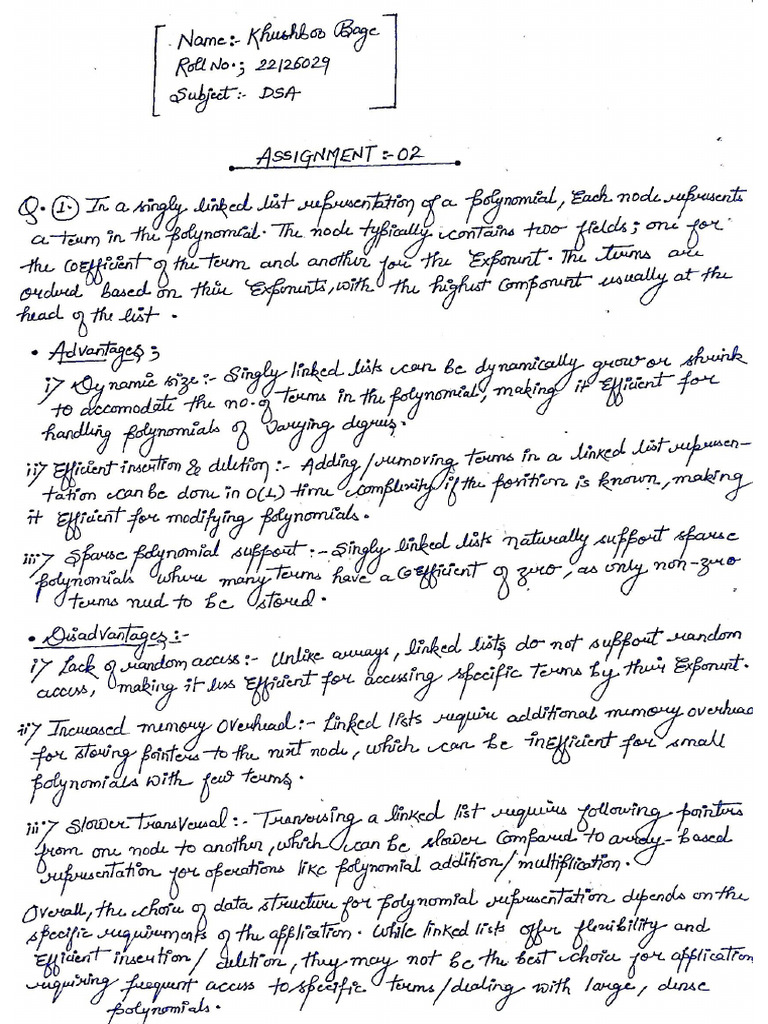 Name:- Khushboo Bage
Roll No.; 22/26029
Subject:- DSA
ASSIGNMENT:-02
Q. 1. In a singly linked list representation of a polynomial, Each node represents
a term in the polynomial. The node typically contains two fields; one for
the coefficient of the term and another for the Exponent. The terms are
orderd based on their Exponents, with the highest component usually at the
head of the list.
• Advantages;
i) Dynamic size:- Singly linked lists can be dynamically grow or shrink
to accomodate the no. of terms in the polynomial, making it Efficient for
handling polynomials of varying degrees.
ii) Efficient insertion & deletion:- Adding/removing terms in a linked list represen-
tation can be done in O(1) time complexity if the position is known, making
it Efficient for modifying polynomials.
iii) Sparse polynomial support:- Singly linked lists naturally support sparse
polynomials where many terms have a coefficient of zero, as only non-zero
terms need to be stored.
• Disadvantages:-
i) Lack of random access:- Unlike arrays, linked lists do not support random
access, making it less Efficient for accessing specific terms by their Exponent.
ii) Increased memory overhead:- Linked lists require additional memory overhead
for storing pointers to the next node, which can be inefficient for small
polynomials with few terms.
iii) Slower Transversal:- Tranversing a linked list requires following pointers
from one node to another, which can be slower compared to array-based
representation for operations like polynomial addition/multiplication.
Overall, the choice of data structure for polynomial representation depends on the
specific requirements of the application. While linked lists offer flexibility and
Efficient insertion/deletion, they may not be the best choice for application
requiring frequent access to specific terms/dealing with large, dense
polynomials.